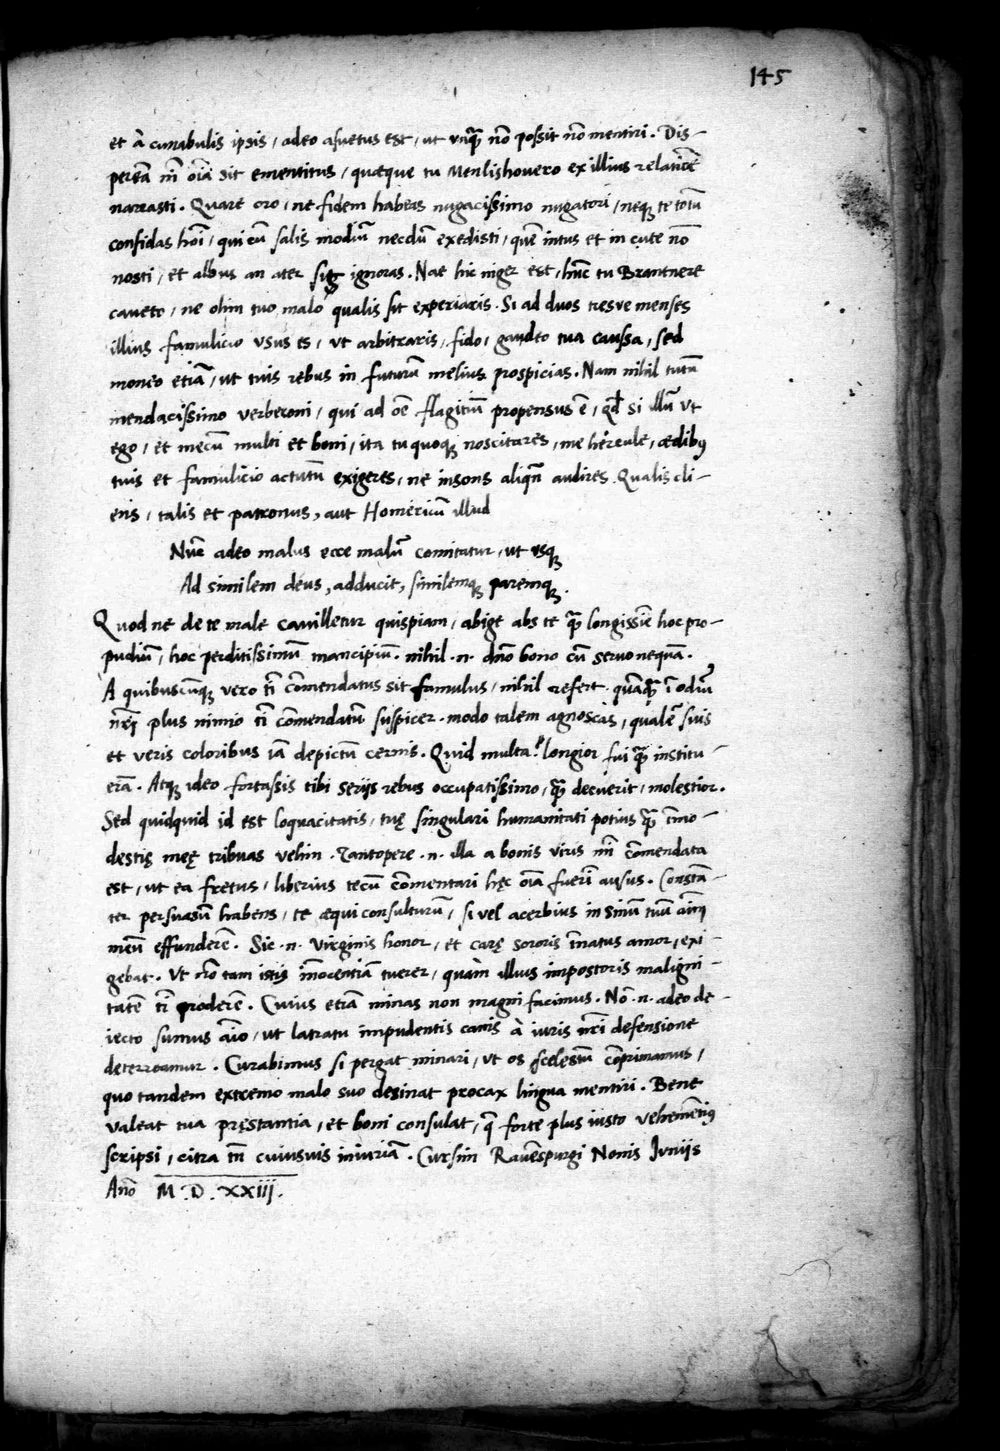 145
et à cunabulis ipsis, adeo asuetus est, ut unq̃ȝ nõ possit nõ mentiri. Dis-
pereã nĩ oĩa sit ementitus, quæque tu Menlishouero ex illius relatiõe
narrasti. Quare oro, ne fidem habeas nugacissimo nugatori, neqȝ te totũ
confidas hoĩ, qui cũ salis modiũ necdũ exedisti, quẽ intus et in cute nõ
nosti, et albus an ater sit ignoras. Nae hic niger est, hũc tu Brantnere
caueto, ne olim tuo malo qualis sit experiaris. Si ad duos tresve menses
illius famulicio vsus es, vt arbitraris, fido, gaudeo tua caussa, sed
moneo etiã, ut tuis rebus in futurũ melius prospicias. Nam nihil tutũ
mendacissimo verberoni, qui ad oẽ flagitiũ propensus ẽ, qđ si illũ vt
ego, et mecũ multi et boni, ita tu quoqȝ noscitares, me hercule, ædibȝ
tuis et famulicio actutũ exigeres, ne insons aliqñ audires. Qualis cli-
ens, talis et patronus, aut Homericũ illud
Nũc adeo malus ecce malũ comitatur, ut usqȝ
Ad similem deus, adducit, similemqȝ paremqȝ.
Quod ne de te male cauilletur quispiam, abige abs te q̃ȝ longissĩe hoc pro-
pudiũ, hoc perditissimũ mancipiũ. nihil .n. dño bono cũ servo nequã.
A quibuscũqȝ vero tĩ cõmendatus sit famulus, nihil refert. quãq̃ȝ ĩ odiũ
nr̃i plus nimio tĩ cõmendatũ suspicer. modo talem agnoscas, qualẽ suis
et veris coloribus iã depictũ cernis. Quid multa? longior fui q̃ȝ institu-
erã. Atqȝ ideo fortassis tibi serijs rebus occupatissimo, q̃ȝ decuerit, molestior.
Sed quidquid id est loquacitatis, tuę singulari humanitati potius q̃ȝ ĩmo-
destię meę tribuas velim. Tantopere .n. illa a bonis viris mĩ cõmendata
est, ut ea fretus, liberius tecũ cõmentari hęc oĩa fuerĩ ausus. Constã-
ter persuasũ habens, te æqui consulturũ, si vel acerbius in sinũ tuũ aĩm
meũ effunderẽ. Sic .n. virginis honor, et carę sororis ĩnatus amor, exi-
gebat. Vt nõ tam istis ĩnocentiã tuerer, quàm illius impostoris maligni-
tatẽ tĩ proderẽ. Cuius etiã minas non magni facimus. Nõ .n. adeo de-
iecto sumus aĩo, ut latratu impudentis canis à iuris nr̃i defensione
deterreamur. Curabimus si pergat minari, vt os scelestũ cõprimamus,
quo tandem extremo malo suo desinat procax lingua mentiri. Bene
valeat tua pręstantia, et boni consulat, q̃ forte plus iusto vehemẽtiȝ
scripsi, citra tñ cuiusuis iniuriã. Cursim Rauẽspurgi Nonis Junijs
Año M.D.XXIII.